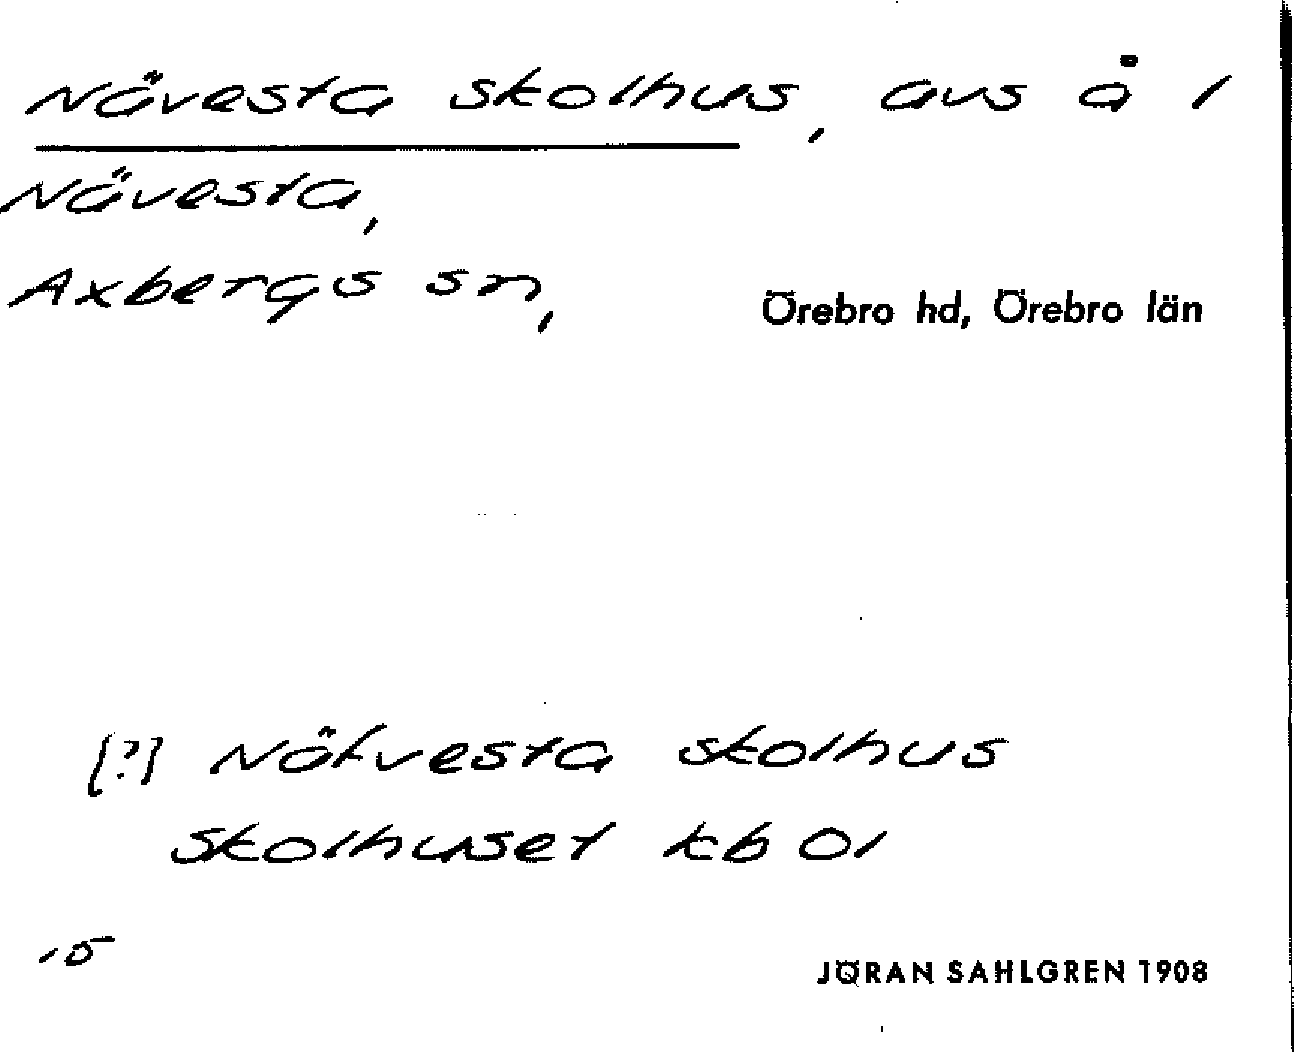 Nävesta skolhus, avs å 1
Nävesta,
Axbergs sn, Örebro hd, Örebro län
[?] Näfvesta skolhus
Skolhuset kb 01
15
JÖRAN SAHLGREN 1908